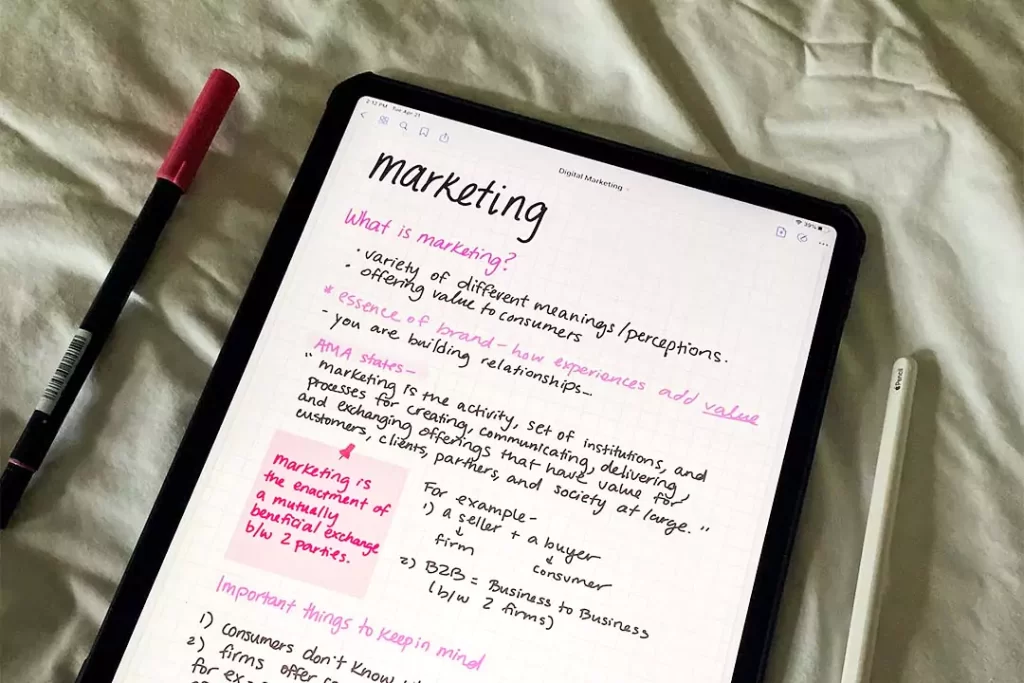 2:12 PM Tue Apr 21
Digital Marketing
39%
marketing
What is marketing?
• variety of different meanings/perceptions.
• offering value to consumers
* essence of brand - how experiences add value
- you are building relationships -
AMA states -
"marketing is the activity, set of institutions, and
processes for creating, communicating, delivering,
and exchanging offerings that have value for
customers, clients, partners, and society at large."
marketing is
the enactment of
a mutually
beneficial exchange
b/w 2 parties.
For example -
1) a seller + a buyer
↓ ↓
firm consumer
2) B2B = Business to Business
(b/w 2 firms)
Important things to keep in mind
1) consumers don't know
2) firms offer
for ex
Pencil